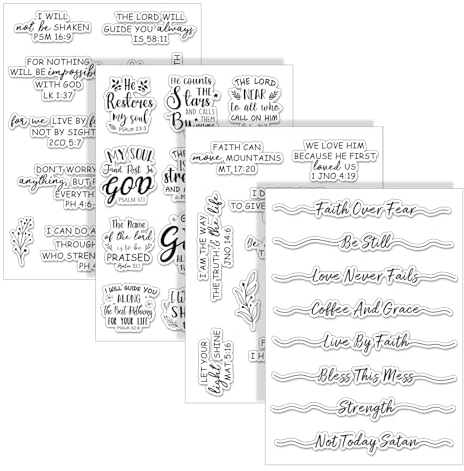 I WILL
not be SHAKEN
PSM 16:9
THE LORD WILL
GUIDE YOU always
IS 58:11
FOR NOTHING
WILL BE impossible
WITH GOD
LK 1:37
for we LIVE BY
NOT BY SIGHT
2CO 5:7
DON'T WORRY
anything, BUT
EVERYTH
PH 4:6
I CAN DO A
THROUGH
WHO STREN
PH 4
He
Restores
my soul
PSALM 23:3
He counts
THE
Stars
AND CALLS
THEM
By
THE LORD
is
NEAR
to all who
CALL ON HIM
MY SOUL
Find Rest In
GOD
PSALM 62:1
The Name
of the lord
is to be
PRAISED
I WILL GUIDE YOU
ALONG
the Best Pathway
FOR YOUR LIFE
PSALM 32:8
FAITH CAN
move MOUNTAINS
MT 17:20
WE LOVE HIM
BECAUSE HE FIRST
loved US
1 JNO 4:19
I AM THE WAY
THE TRUTH & the life
JNO 14:6
LET YOUR
light SHINE
MAT 5:16
Faith Over Fear
Be Still
Love Never Fails
Coffee And Grace
Live By Faith
Bless This Mess
Strength
Not Today Satan